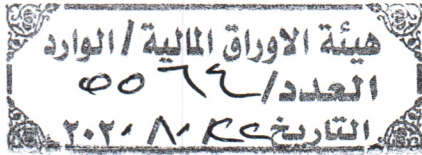 هيئة الاوراق المالية / الوارد
العدد/ ٥٥٦٤
التاريخ / ٢٠٢٠